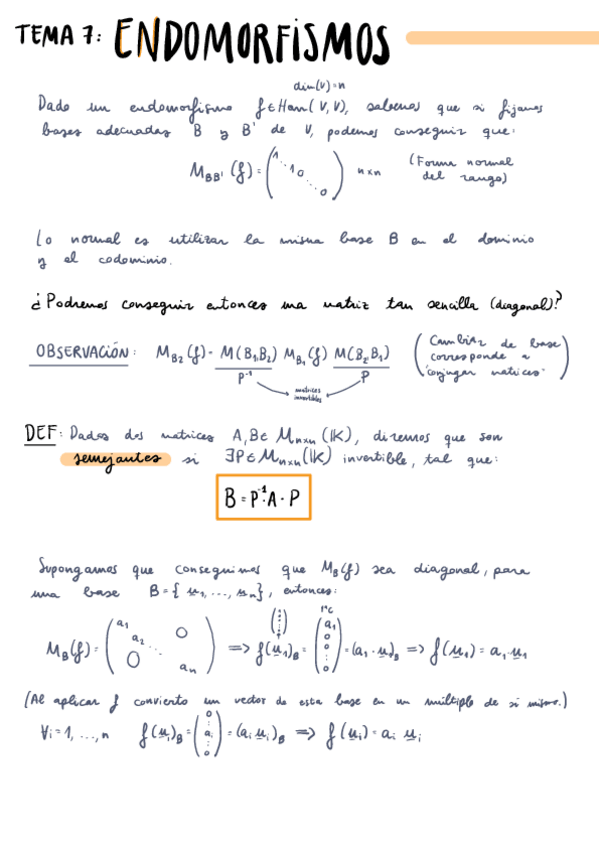 TEMA 7: ENDOMORFISMOS
dim(V)=n
Dado un endomorfismo f∈Hom(V,V), sabemos que si fijamos
bases adecuadas B y B' de V, podemos conseguir que:
M_BB'(f) = (1 ⋱ 1 0 ⋱ 0) n×n (Forma normal
del rango)
Lo normal es utilizar la misma base B en el dominio
y el codominio.
¿Podremos conseguir entonces una matriz tan sencilla (diagonal)?
OBSERVACIÓN: M_B2(f) = M(B1,B2) M_B1(f) M(B2,B1) (Cambiar de base
corresponde a
"conjugar matrices")
P⁻¹ P
matrices
invertibles
DEF: Dados dos matrices A,B∈ M_n×n(IK), diremos que son
semejantes si ∃P∈M_n×n(IK) invertible, tal que:
B = P⁻¹·A·P
Supongamos que conseguimos que M_B(f) sea diagonal, para
una base B={u1, ..., un}, entonces:
1ªC
M_B(f) = (a1 a2 ⋱ an 0 0) => f(u1)_B = (a1 0 0 ⋮ 0) = (a1·u1)_B => f(u1) = a1·u1
(Al aplicar f convierto un vector de esta base en un múltiplo de sí mismo.)
∀i=1, ...,n f(ui)_B = (0 ⋮ ai ⋮ 0) = (ai ui)_B => f(ui) = ai ui